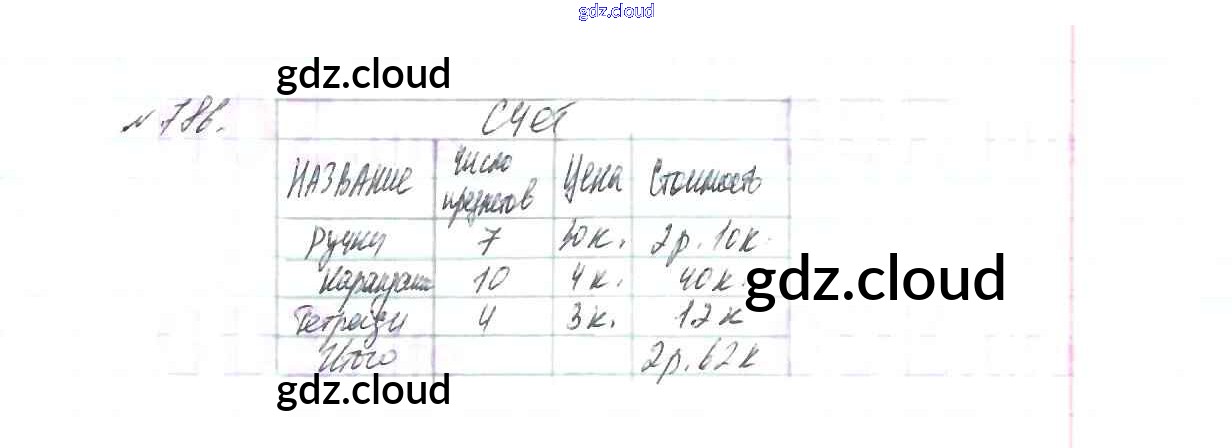 gdz.cloud
gdz.cloud
№ 786.
Счёт
Название Число предметов Цена Стоимость
Ручки 7 30к. 2р. 10к.
Карандаши 10 4к. 40к.
gdz.cloud
Тетради 4 3к. 12к
Итого 2р. 62к
gdz.cloud